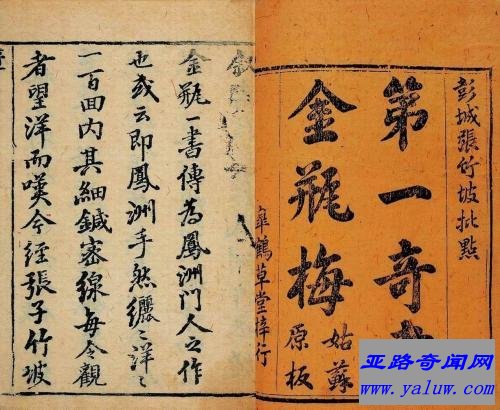 彭城張竹坡批點
第一奇書
金瓶梅
姑蘇
原板
皐鶴草堂梓行
金瓶一書傳為鳳洲門人之作
也或云即鳳洲手然纚〻洋〻
一百回內其細鍼密線每令觀
者望洋而嘆今經張子竹坡
亚路奇闻网
www.yaluw.com